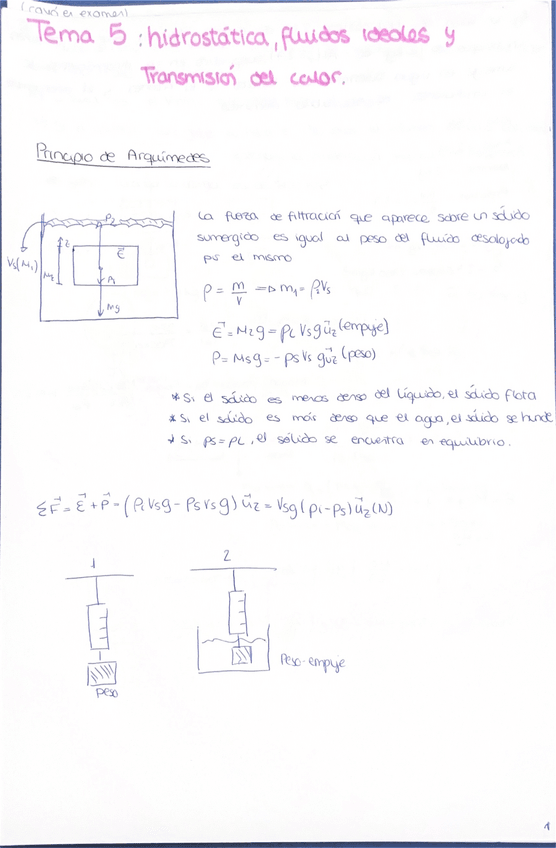 Tema 5: hidrostática, fluidos ideales y
Transmisión del calor.
Principio de Arquímedes
La fuerza de filtración que aparece sobre un sólido
sumergido es igual al peso del fluido desalojado
por el mismo
P2
z
E
Vs(M1)
Mz
P1
Mg
ρ = m/v => m1 = ρi Vs
E = Mzg = ρL Vs g uz (empuje)
P = Msg = -ρs Vs g uz (peso)
* Si el sólido es menos denso del líquido, el sólido flota
* Si el sólido es más denso que el agua, el sólido se hunde
* Si ρs = ρL, el sólido se encuentra en equilibrio.
ΣF = E + P = (ρi Vs g - ρs Vs g) uz = Vs g (ρi - ρs) uz (N)
1
2
Peso
Peso-empuje
1